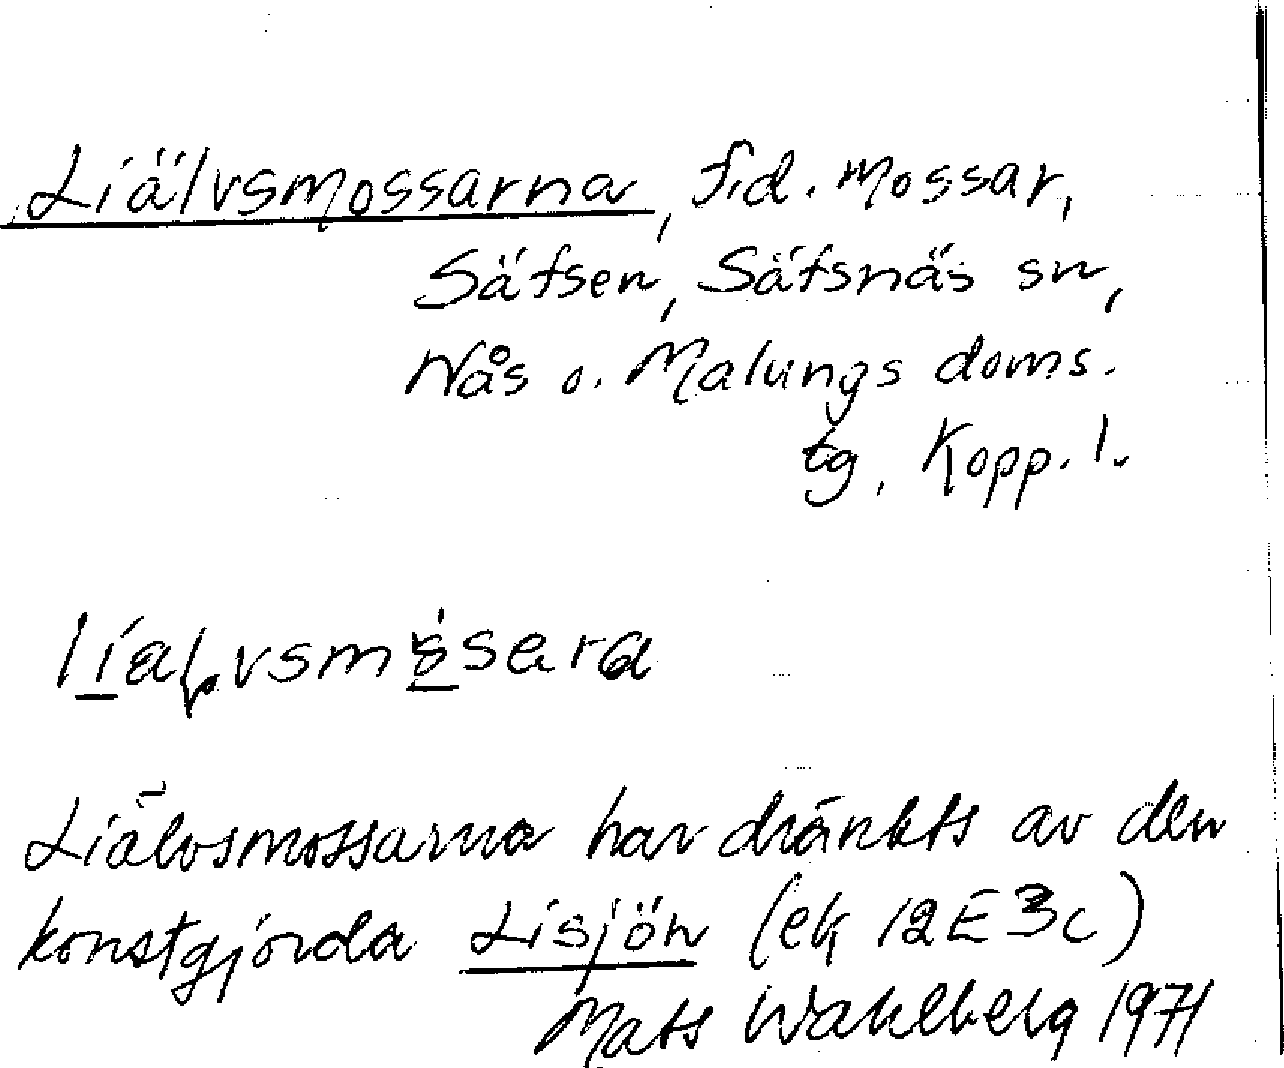 Liälvsmossarna, f.d. mossar,
Säfsen, Säfsnäs sn,
Nås o. Malungs doms.
tg, Kopp. l.
Liälvsmossarna har dränkts av den
konstgjorda Lisjön (ek 12E3c)
Mats Wahlberg 1971